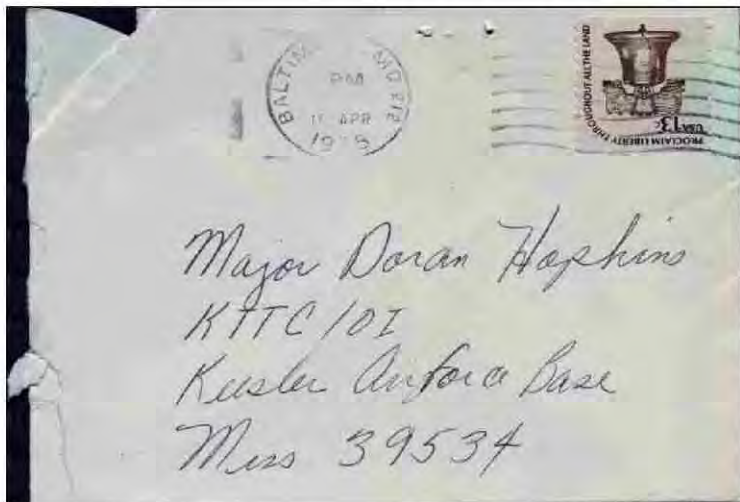 BALTIMORE MD 212
PM
APR
PROCLAIM LIBERTY THROUGHOUT ALL THE LAND
USA 13c
Major Doran Hopkins
KTTC/OI
Keesler Airforce Base
Miss 39534